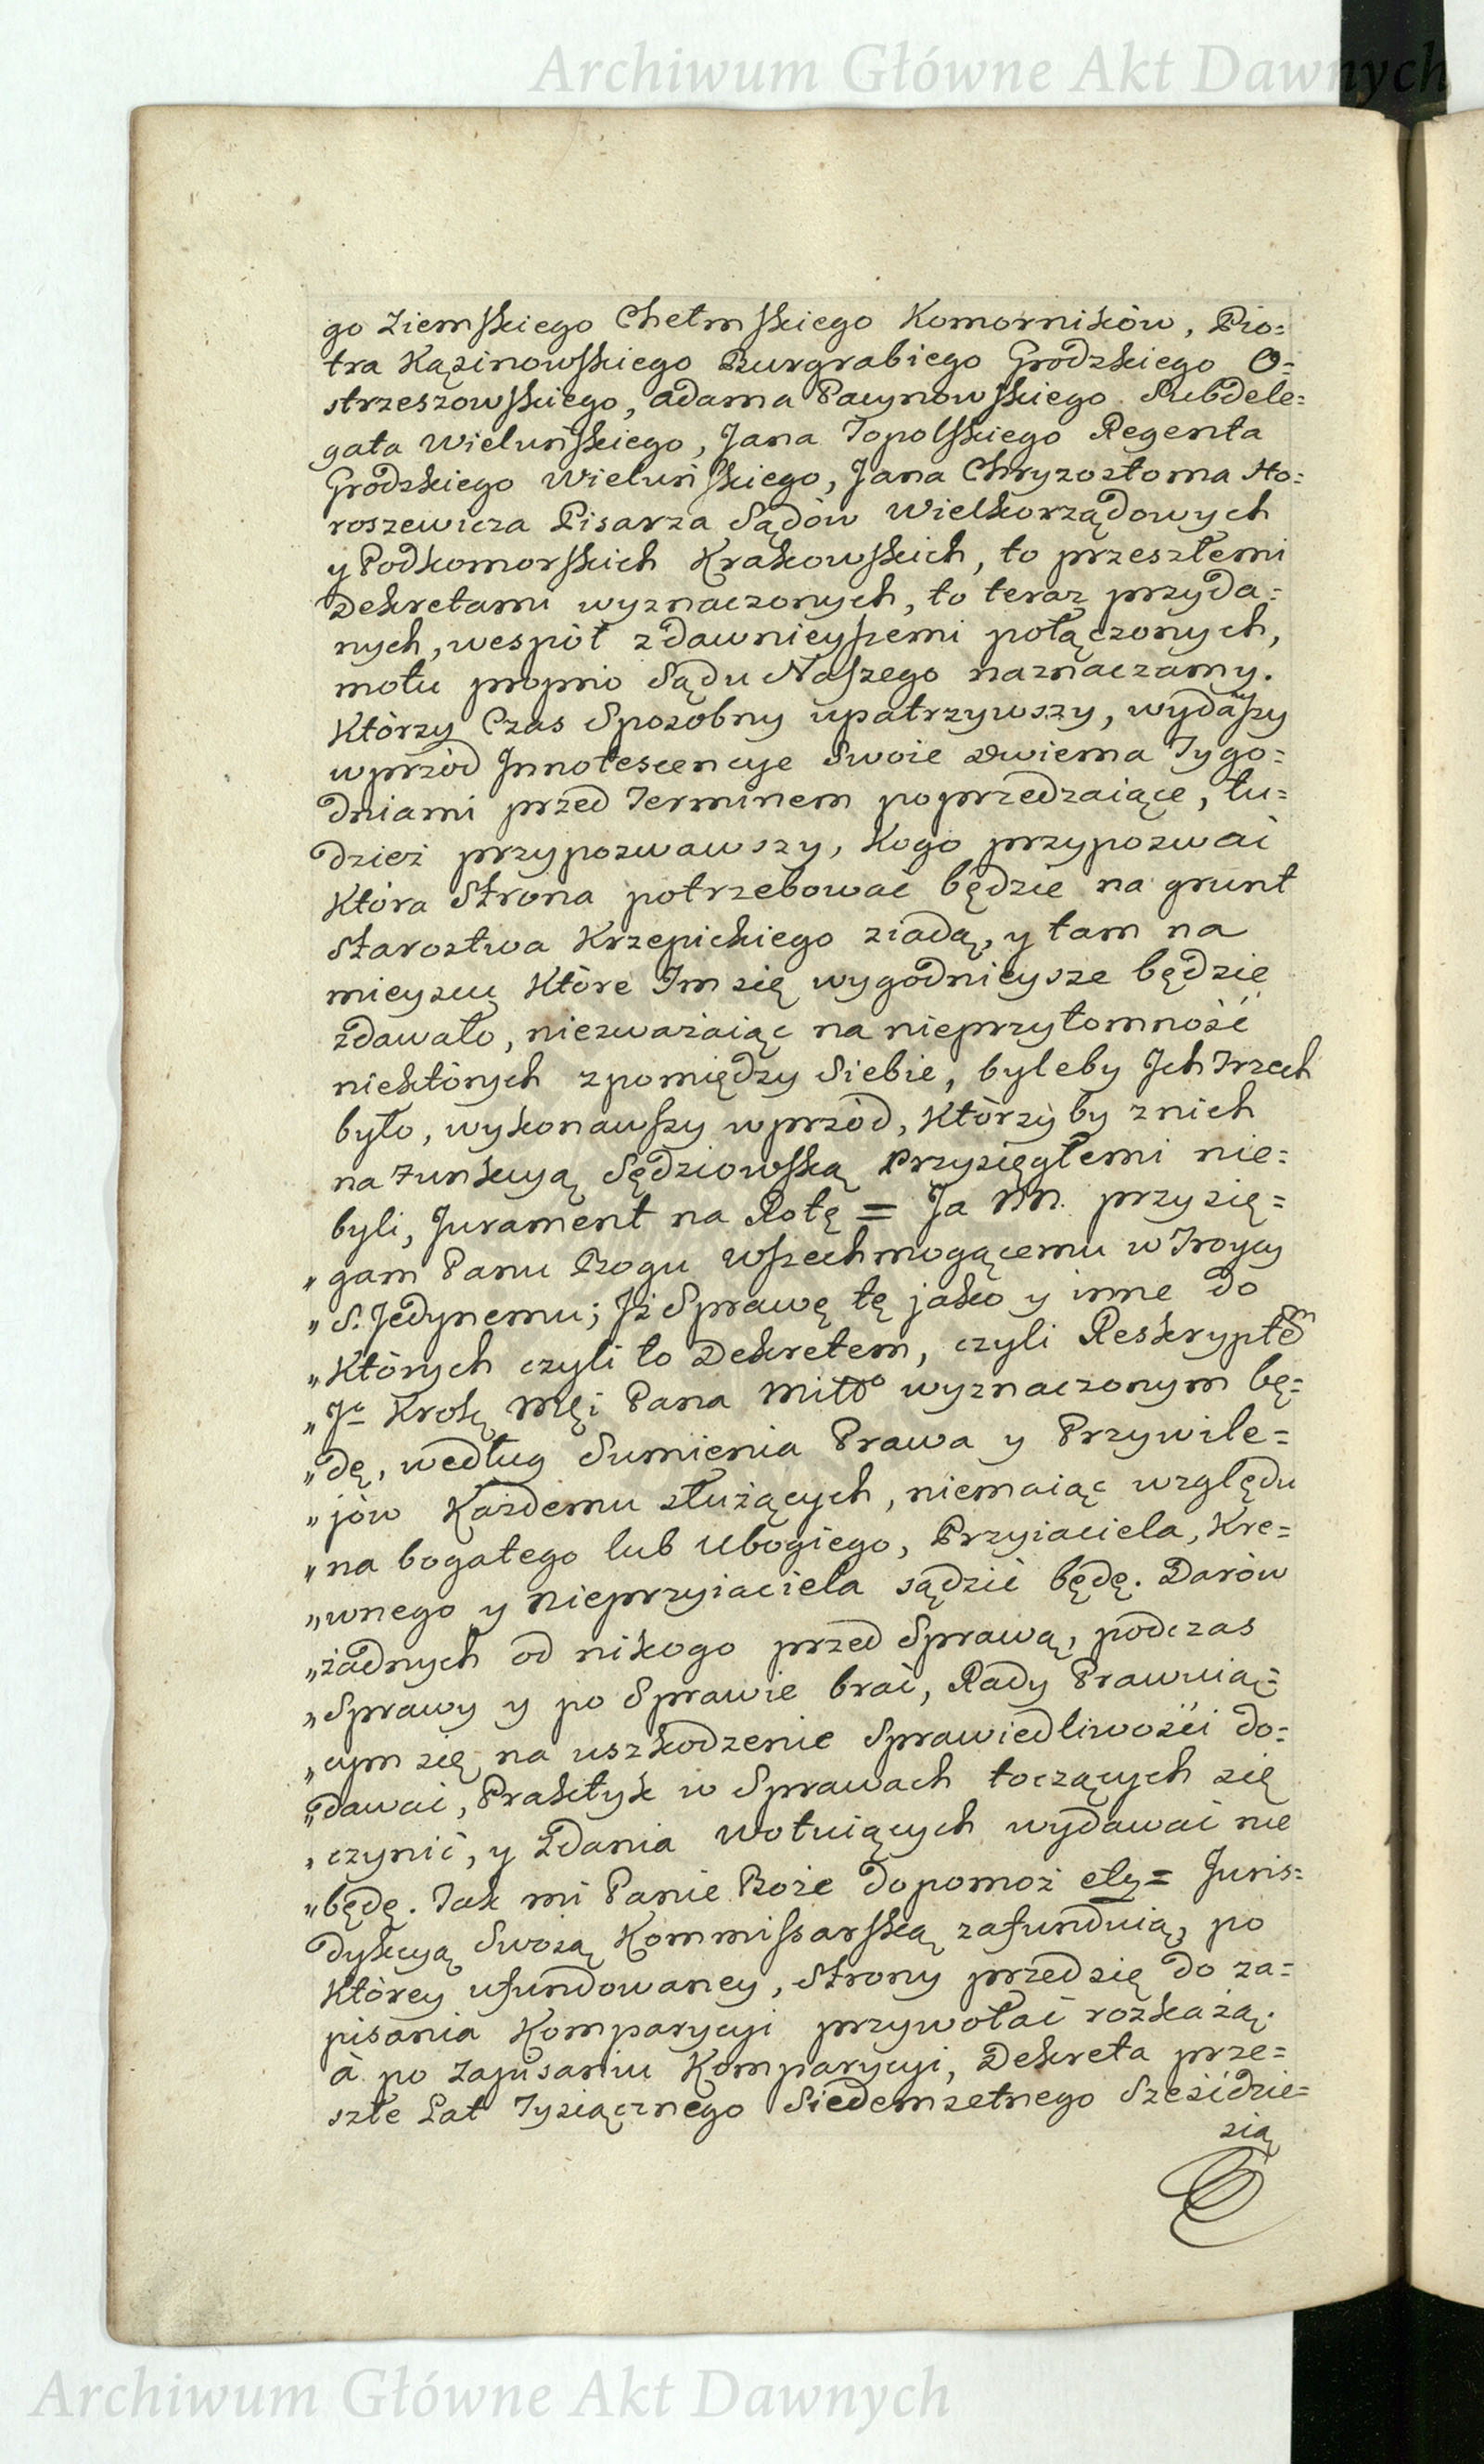 Archiwum Główne Akt Dawnych
go Ziemskiego Chełmskiego Komorników, Pio=
tra Kązinowskiego Burgrabiego Grodzkiego O=
strzeszowskiego, Adama Pacynowskiego Subdele=
gata Wieluńskiego, Jana Topolskiego Regenta
Grodzkiego Wieluńskiego, Jana Chryzostoma Ho=
roszewicza Pisarza Sądów Wielkorządowych
y Podkomorskich Krakowskich, to przeszłemi
Dekretami wyznaczonych, to teraz przyda=
nych, wespół z dawnieyszemi połączonych,
motu proprio Sądu Naszego naznaczamy.
Którzy Czas Sposobny upatrzywszy, wydawszy
wprzód Innotescencye Swoie dwiema Tygo=
dniami przed Terminem poprzedzaiące, tu=
dzież przypozwawszy, kogo przypozwać
Która Strona potrzebować będzie na grunt
Starostwa Krzepickiego ziadą, y tam na
mieyscu które Im się wygodnieysze będzie
zdawało, niezważaiąc na nieprzytomność
niektórych z pomiędzy Siebie, byleby Ich Trzech
było, wykonawszy wprzód, którzyby z nich
na Funkcyą Sędziowską Przysięgłemi nie=
byli, Jurament na Rotę = Ja NN. przysię=
„gam Panu Bogu Wszechmogącemu w Troycy
„S. Jedynemu; Iż Sprawę tę jako y inne do
„Których czyli to Dekretem, czyli Reskryptem
„Jº Krolę Męi Pana Miłłº wyznaczonym bę=
„dę, według Sumienia Prawa y Przywile=
„jów Każdemu służących, niemaiąc względu
„na bogatego lub Ubogiego, Przyiaciela, Kre=
„wnego y nieprzyiaciela sądzić będę. Darów
„żadnych od nikogo przed Sprawą, podczas
„Sprawy y po Sprawie brać, Rady Prawuią=
„cym się na uszkodzenie Sprawiedliwości do=
„dawać, Praktyk w Sprawach toczących się
„czynić, y Zdania wotuiących wydawać nie
„będę. Tak mi Panie Boże dopomoż etc = Juris=
dykcyą Swoią Kommissarską zafunduią, po
Którey ufundowaney, Strony przed się do za=
pisania Komparycyi przywołać rozkażą.
à po zapisaniu Komparycyi, Dekreta prze=
szłe Lat Tysiącznego Siedemsetnego Sześćdzie=
sią
Archiwum Główne Akt Dawnych